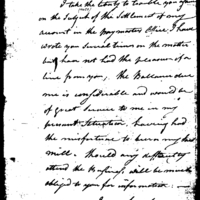 I take the liberty to trouble you again
on the Subject of the Settlement of my
account in the Paymasters Office. I have
wrote you several times on the matter
but have not had the pleasure of a
line from you. The Ballance due
me is considerable and would be
of great Service to me in my
present Situation having had
the misfortune to burn my best
mill. Should any difficulty
attend the will be much
obliged to you for information